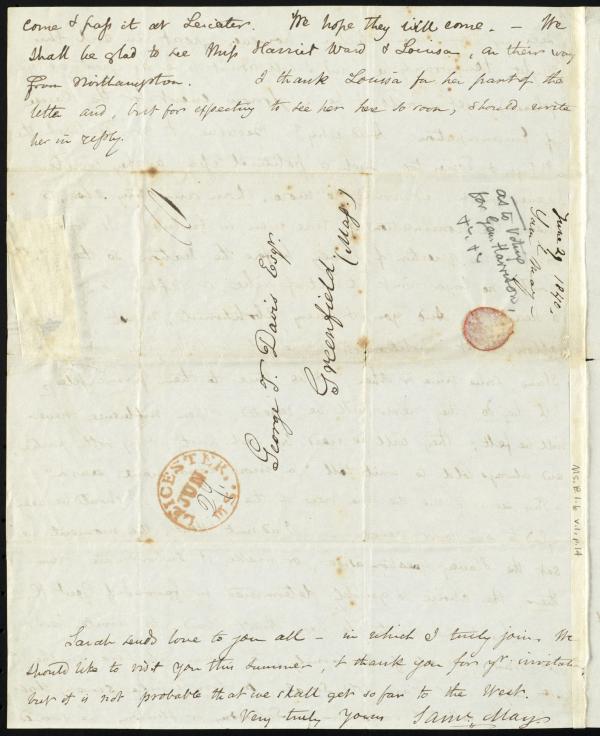 come & pass it at Leicester. We hope they will come. — We
shall be glad to see Miss Harriet Ward & Louisa, on their way
from Northampton. I thank Louisa for her part of the
letter and, but for expecting to see her here so soon, should write
her in reply.
10
George T. Davis Esqr.
Greenfield
(Mass.)
June 29. 1840.
May —
as to Voting
for Gen Harrison,
&c. &c
LEICESTER,
JUN
29
Ms.B.1.6 v.1, p.14
Sarah sends love to you all — in which I truly join. We
should like to visit you this summer & thank you for yr. invitation
but it is not probable that we shall get so far to the West.
Very truly Yours Saml. May.